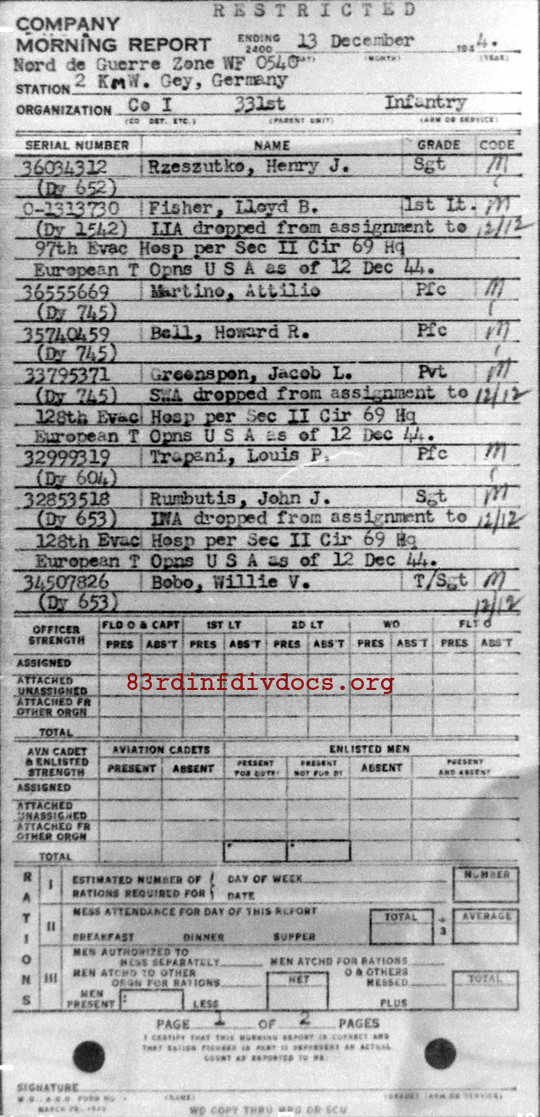 RESTRICTED
COMPANY
MORNING REPORT ENDING 2400 13 December 194 4.
(DAY) (MONTH) (YEAR)
Nord de Guerre Zone WF 0540
STATION 2 KmW. Gey, Germany
ORGANIZATION Co I 331st Infantry
(CO DET. ETC.) (PARENT UNIT) (ARM OR SERVICE)
SERIAL NUMBER NAME GRADE CODE
36034312 Rzeszutko, Henry J. Sgt M
(Dy 652)
0-1313730 Fisher, Lloyd B. 1st Lt. M
(Dy 1542) LIA dropped from assignment to 12/12
97th Evac Hosp per Sec II Cir 69 Hq
European T Opns U S A as of 12 Dec 44.
36555669 Martino, Attilio Pfc M
(Dy 745)
35740459 Bell, Howard R. Pfc M
(Dy 745)
33795371 Greenspon, Jacob L. Pvt M
(Dy 745) SWA dropped from assignment to 12/12
128th Evac Hosp per Sec II Cir 69 Hq
European T Opns U S A as of 12 Dec 44.
32999319 Trapani, Louis P. Pfc M
(Dy 604)
32853518 Rumbutis, John J. Sgt M
(Dy 653) IWA dropped from assignment to 12/12
128th Evac Hosp per Sec II Cir 69 Hq
European T Opns U S A as of 12 Dec 44.
34507826 Bobo, Willie V. T/Sgt M
(Dy 653) 12/12
OFFICER STRENGTH FLD O & CAPT 1ST LT 2D LT WO FLT O
PRES ABS'T PRES ABS'T PRES ABS'T PRES ABS'T PRES ABS'T
ASSIGNED
ATTACHED UNASSIGNED
ATTACHED FR OTHER ORGN
TOTAL
83rdinfdivdocs.org
AVN CADET & ENLISTED STRENGTH AVIATION CADETS ENLISTED MEN
PRESENT ABSENT PRESENT FOR DUTY PRESENT NOT FOR DY ABSENT PRESENT AND ABSENT
ASSIGNED
ATTACHED UNASSIGNED
ATTACHED FR OTHER ORGN
TOTAL
RATIONS
I ESTIMATED NUMBER OF RATIONS REQUIRED FOR DAY OF WEEK DATE NUMBER
II MESS ATTENDANCE FOR DAY OF THIS REPORT TOTAL ÷ 3 AVERAGE
BREAKFAST DINNER SUPPER
III MEN AUTHORIZED TO MESS SEPARATELY MEN ATCHD FOR RATIONS
MEN ATCHD TO OTHER ORGN FOR RATIONS NET O & OTHERS MESSED TOTAL
MEN PRESENT LESS PLUS
PAGE 1 OF 2 PAGES
I CERTIFY THAT THIS MORNING REPORT IS CORRECT AND
THAT RATION FIGURES IN PART II REPRESENT AN ACTUAL
COUNT AS REPORTED TO ME
SIGNATURE
W.D., A.G.O. FORM NO. 1 (NAME) (GRADE) (ARM OR SERVICE)
MARCH
WD COPY THRU MRU OR SCU